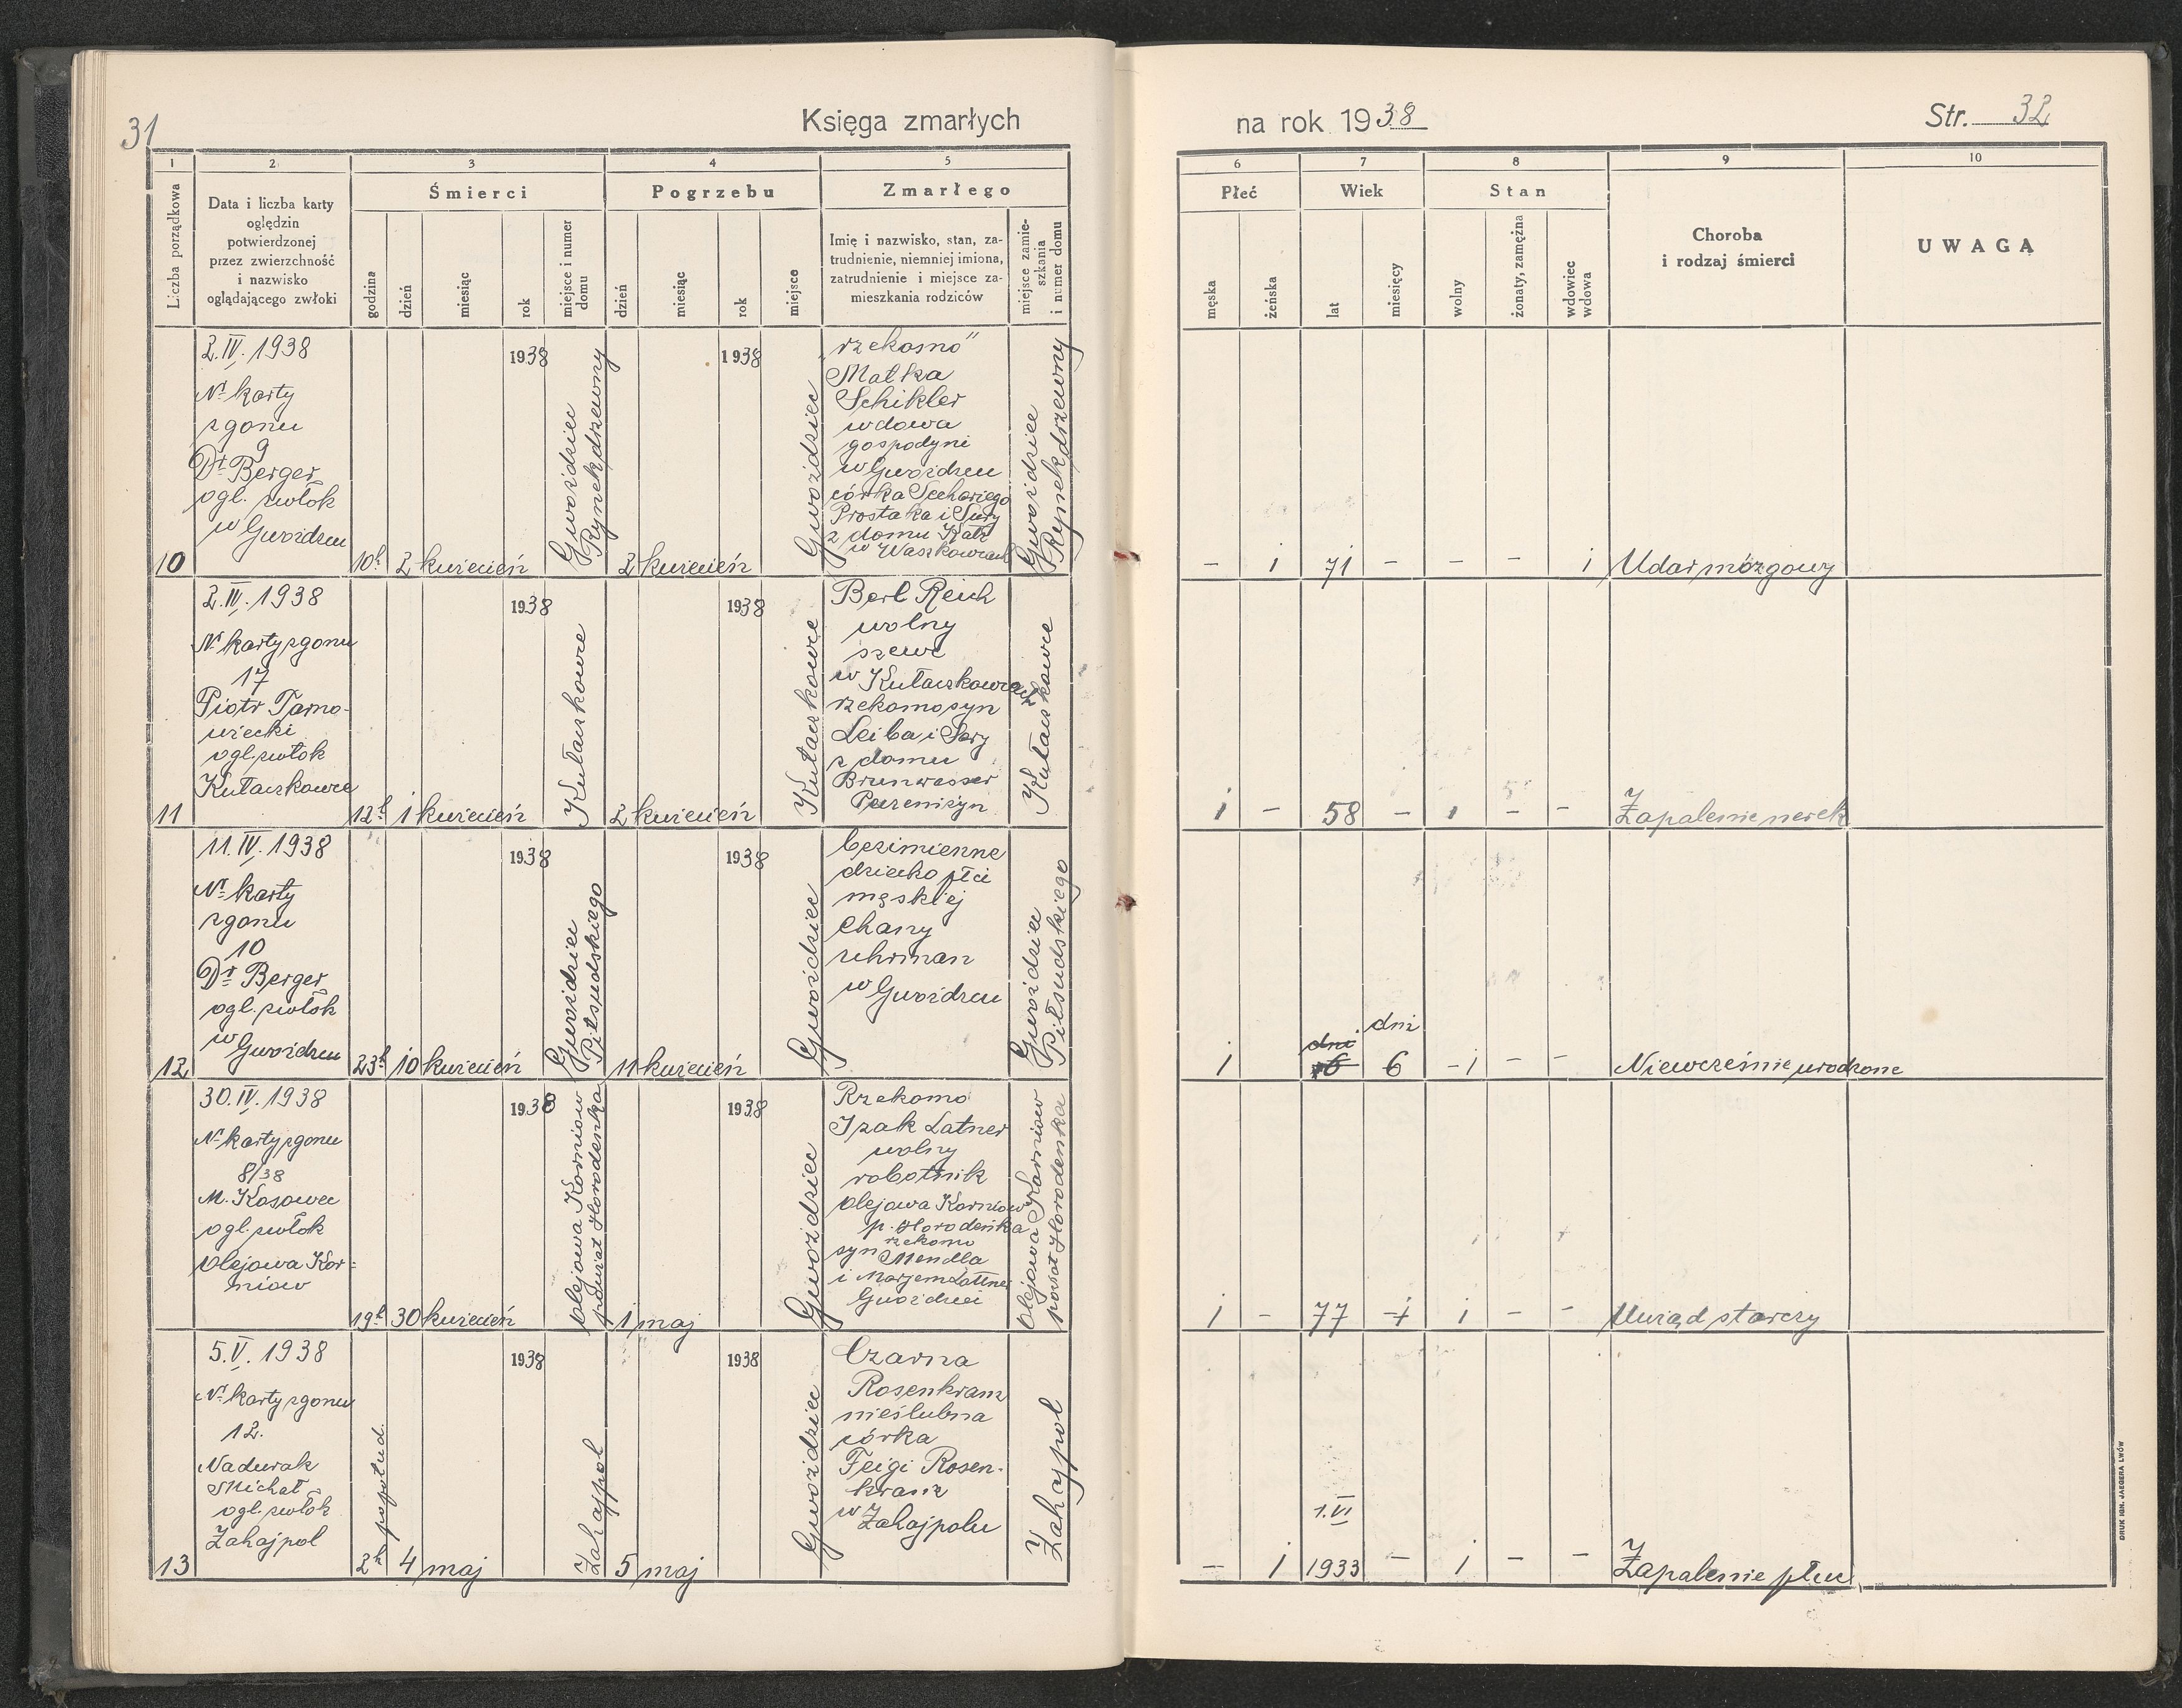 31
Księga zmarłych
na rok 1938
Str. 32
1
2
3
4
5
6
7
8
9
10
Liczba porządkowa
Data i liczba karty
oględzin
potwierdzonej
przez zwierzchność
i nazwisko
oglądającego zwłoki
Śmierci
godzina
dzień
miesiąc
rok
miejsce i numer
domu
Pogrzebu
dzień
miesiąc
rok
miejsce
Zmarłego
Imię i nazwisko, stan, za-
trudnienie, niemniej imiona,
zatrudnienie i miejsce za-
mieszkania rodziców
miejsce zamie-
szkania
i numer domu
Płeć
męska
żeńska
Wiek
lat
miesięcy
Stan
wolny
żonaty, zamężna
wdowiec
wdowa
Choroba
i rodzaj śmierci
UWAGA
10
2.IV.1938
Nr karty
zgonu
9
Dr Berger
ogl. zwłok
w Gwoźdzcu
10h
2
kwiecień
1938
Gwoździec
Rynek drzewny
2
kwiecień
1938
Gwoździec
"rzekomo"
Malka
Schikler
wdowa
gospodyni
w Gwoźdzcu
córka
Prostaka i Sury
z domu Katz
w Waszkowcach
Gwoździec
Rynek drzewny
–
1
71
–
–
–
1
Udar mózgowy
11
2.IV.1938
Nr karty zgonu
17
Piotr Tarno-
wiecki
ogl. zwłok
Kułaczkowce
12h
1
kwiecień
1938
Kułaczkowce
2
kwiecień
1938
Kułaczkowce
Berl Reich
wolny
szewc
w Kułaczkowcach
rzekomo syn
Leiba i Sary
z domu
Brunwasser
Kułaczkowce
1
–
58
–
1
–
–
Zapalenie nerek
12
11.IV.1938
Nr karty
zgonu
10
Dr Berger
ogl. zwłok
w Gwoźdzcu
23h
10
kwiecień
1938
Gwoździec
Piłsudskiego
11
kwiecień
1938
Gwoździec
bezimienne
dziecko płci
męskiej
Chany
w Gwoźdzcu
Gwoździec
Piłsudskiego
1
dni
6
dni
6
–1
–
–
Niewcześnie urodzone
13
30.IV.1938
Nr karty zgonu
8/38
M. Kosowec
ogl. zwłok
Olejowa Kor=
niow
19h
30
kwiecień
1938
Olejowa Korniow
powiat Horodenka
1
maj
1938
Gwoździec
Rzekomo
Izak Latner
wolny
robotnik
Olejowa Korniow
p. Horodenka
rzekomo
syn Mendla
i Marjem Lattner
Olejowa Korniow
powiat Horodenka
1
–
77
1
–
–
Uwiąd starczy
5.V.1938
Nr karty zgonu
12.
Nadurak
Michał
ogl. zwłok
Zahajpol
2h popołud.
4
maj
1938
Zahajpol
5
maj
1938
Gwoździec
Czarna
Rosenkranz
nieślubna
córka
Feigi Rosen-
kranz
w Zahajpolu
Zahajpol
–
1
1.VI
1933
–
1
–
–
Zapalenie płuc
DRUK IGN. JAEGERA LWÓW